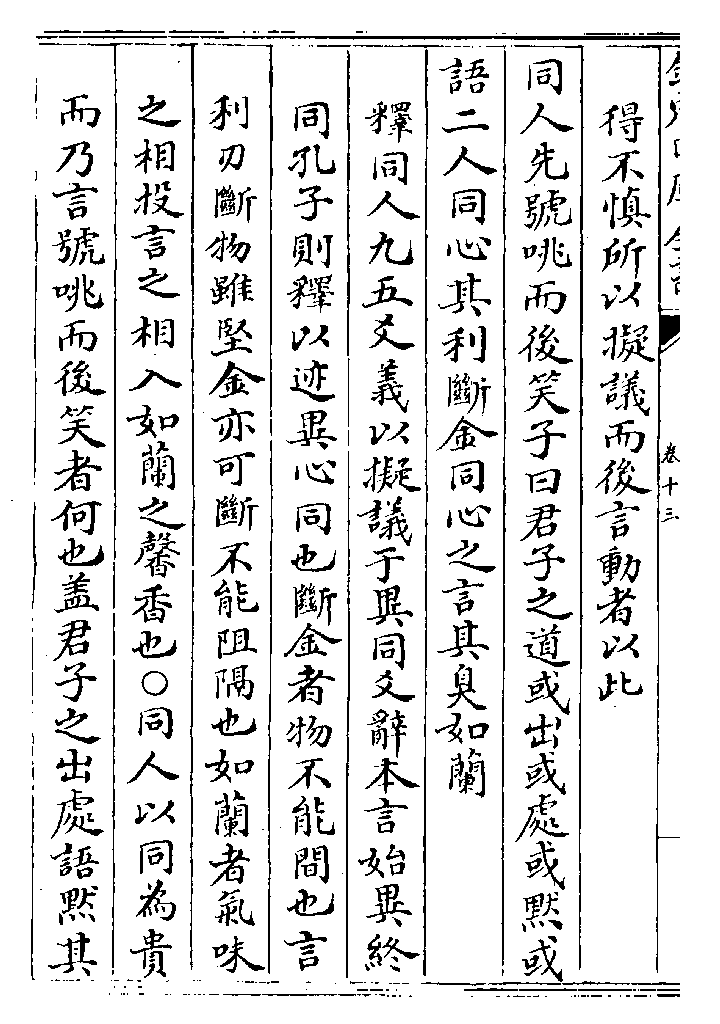 得不慎所以擬議而後言動者以此
同人先號咷而後笑子曰君子之道或出或處或默或
語二人同心其利斷金同心之言其臭如蘭
釋同人九五爻義以擬議于異同爻辭本言始異終
同孔子則釋以迹異心同也斷金者物不能間也言
利刃斷物雖堅金亦可斷不能阻隔也如蘭者氣味
之相投言之相入如蘭之馨香也○同人以同為貴
而乃言號咷而後笑者何也盖君子之出處語默其
卷十三